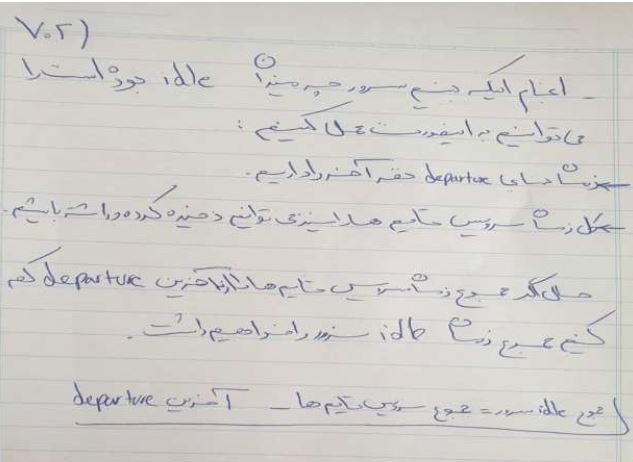 ۷.۲)
ـ انجام اینکه ببینیم سرور چه میزان idle بوده است را
می توانیم به اینصورت عمل کنیم :
← زمان های departure نفر آخر را داریم.
← کل زمان سرویس تایم ها را نیز می توانیم ذخیره کرده و داشته باشیم.
حال اگر مجموع زمان سرویس تایم ها را از آخرین departure کم
کنیم مجموع زمان idle سرور را خواهیم داشت.
مجموع idle سرور = مجموع سرویس تایم ها ـ آخرین departure